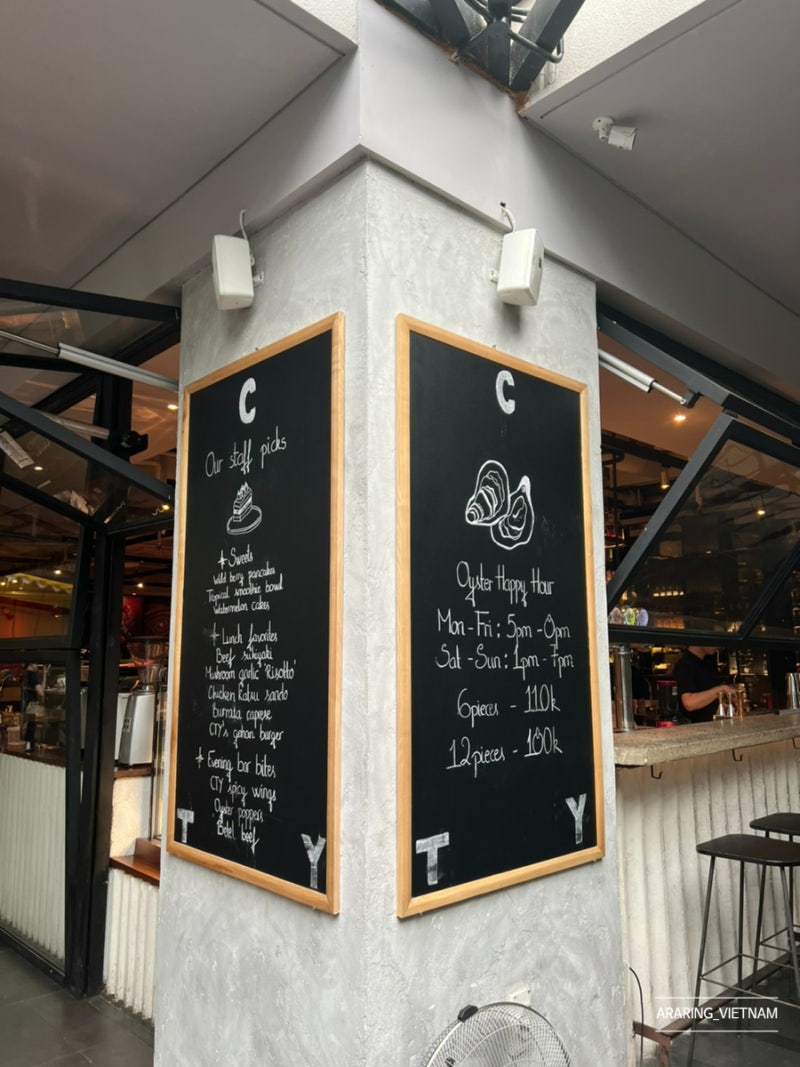 C
Our staff picks
+ Sweets
Wild berry pancakes
Tropical smoothie bowl
Watermelon cakes
+ Lunch favorites
Beef sukiyaki
Mushroom garlic 'Risotto'
Chicken Katsu sando
Burrata caprese
CTY's gohan burger
+ Evening bar bites
CTY spicy wings
Oyster poppers
Betel beef
T
Y
C
Oyster Happy Hour
Mon-Fri: 5pm -
Sat-Sun: 1pm - 7pm
6pieces - 110k
12pieces -
T
Y
ARARING_VIETNAM